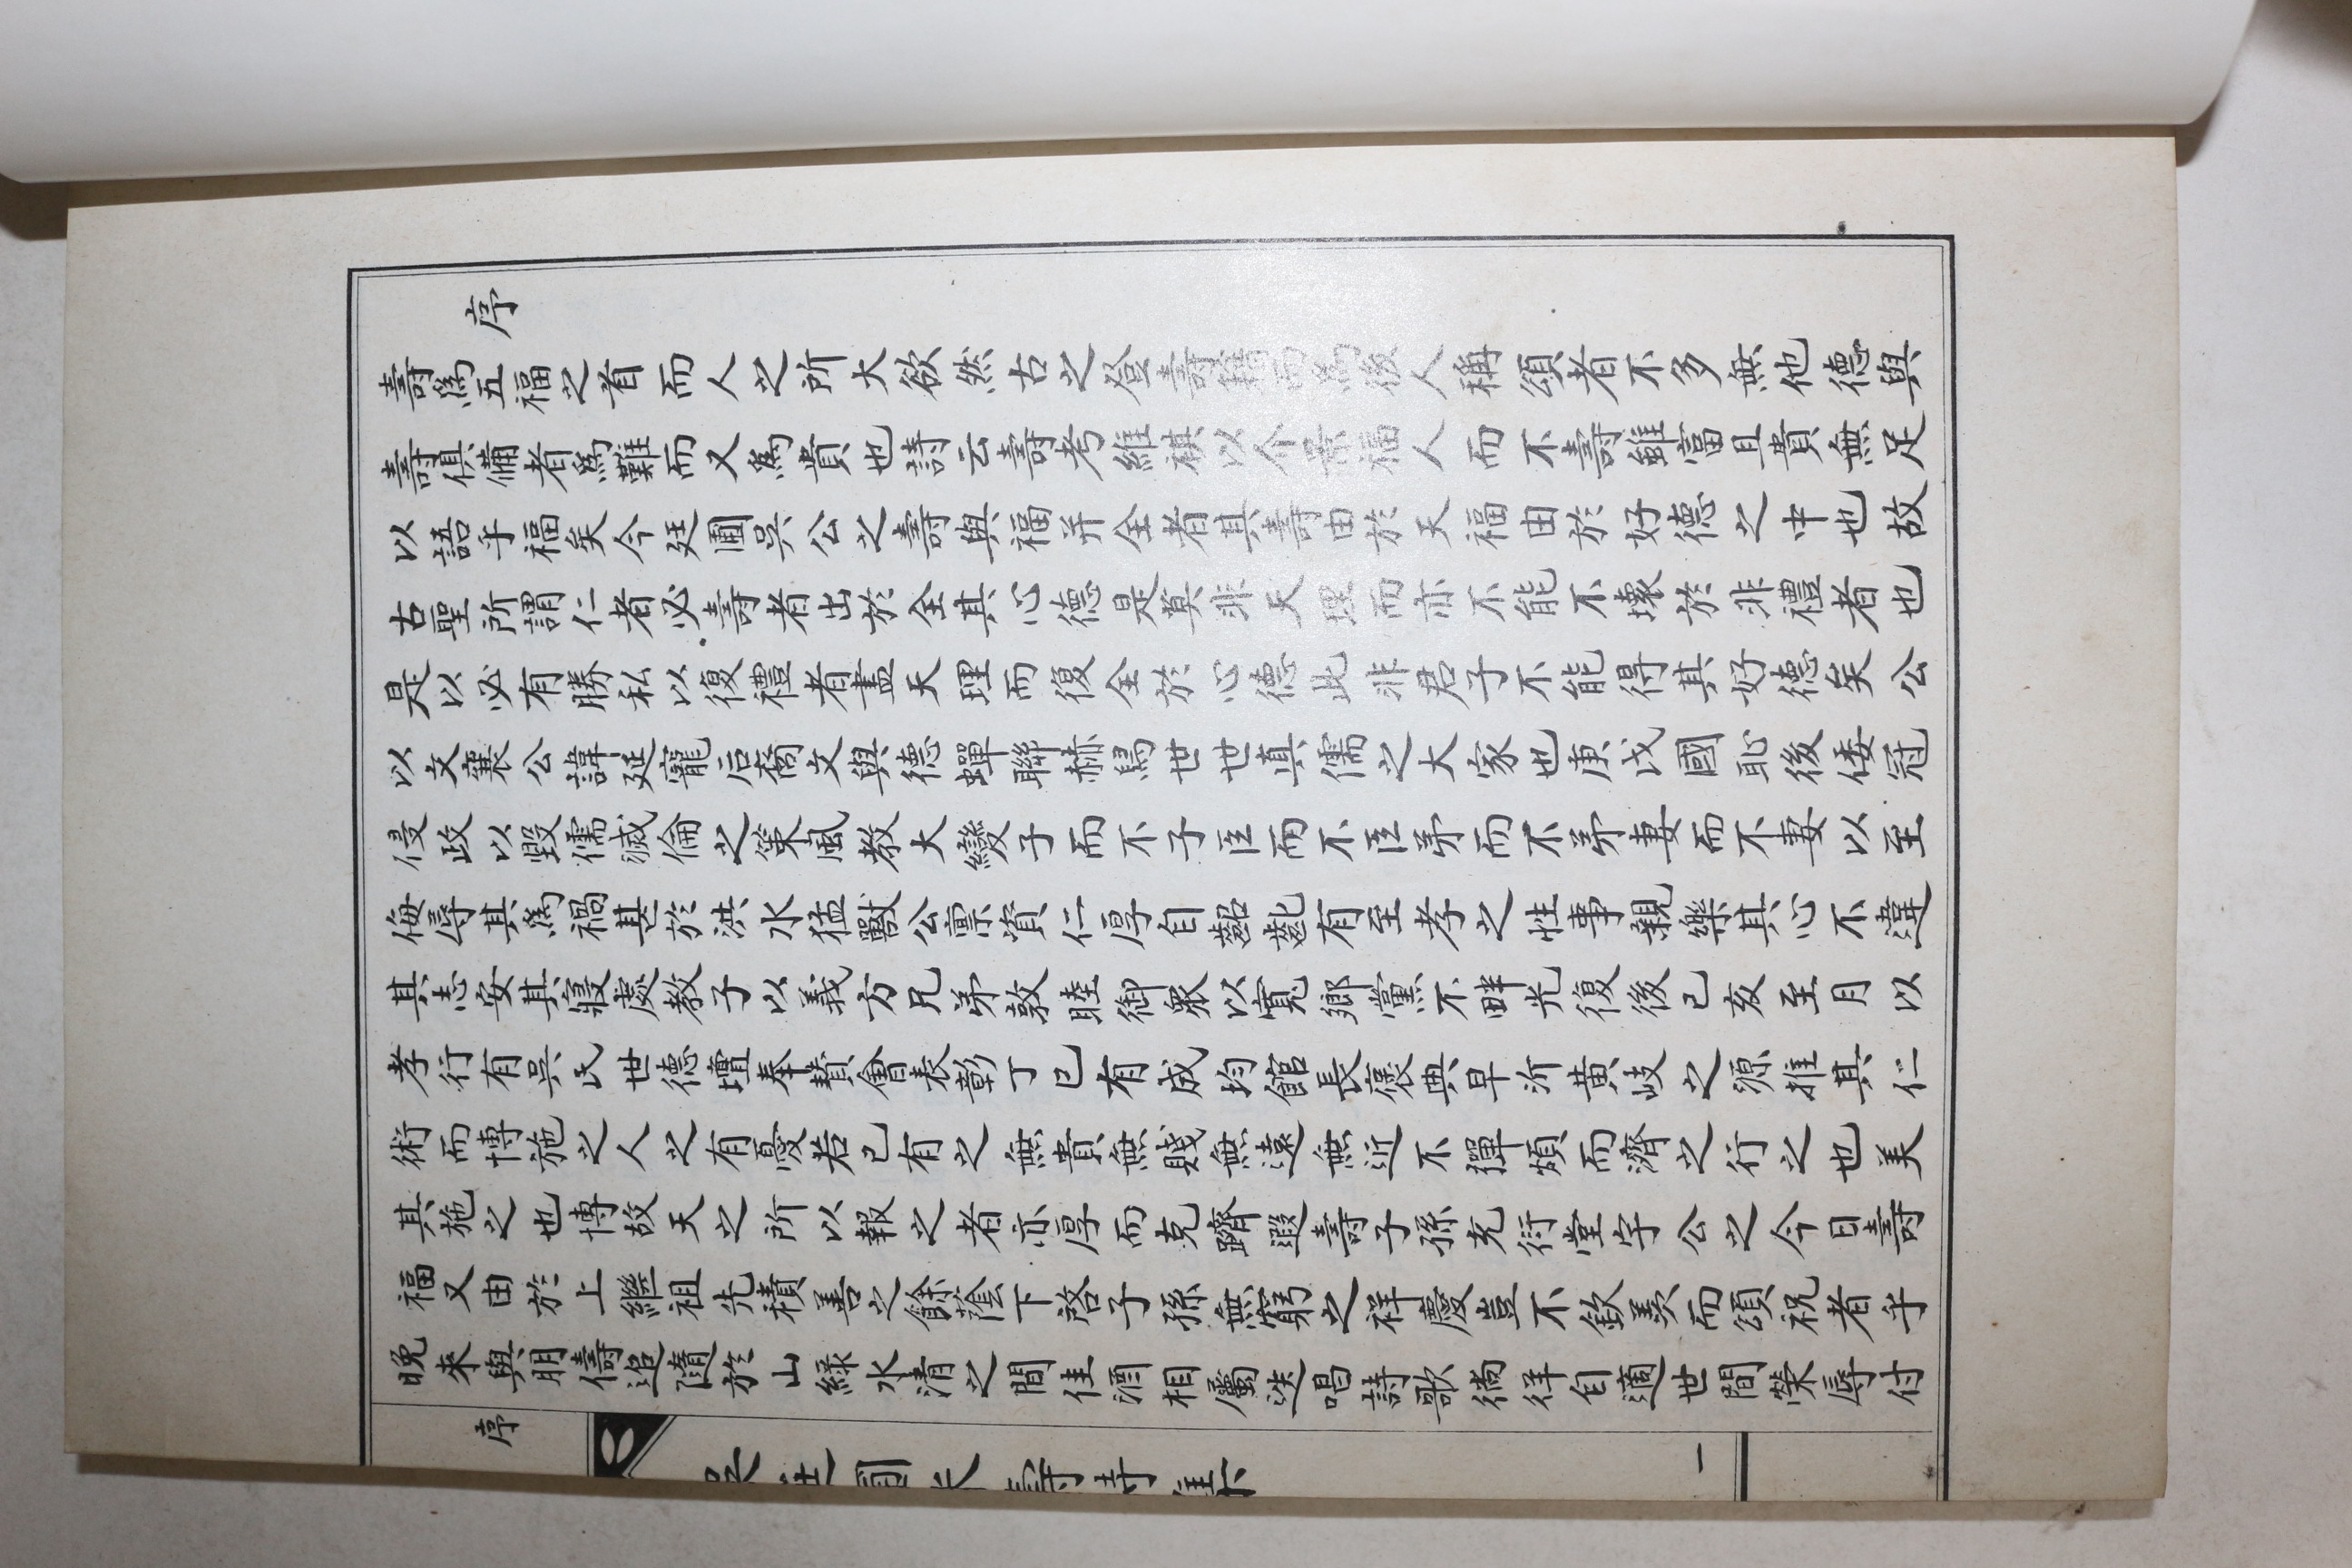 序
壽爲五福之首而人之所大欲然古之登壽籍而爲後人稱頌者不多無他德與
壽俱備者爲難而又爲貴也詩云壽考維祺以介景福人而不壽雖富且貴無足
以語乎福矣今廷圃吳公之壽與福并全者其壽由於天福由於好德之中也故
古聖所謂仁者必壽者出於全其心德是莫非天理而亦不能不壞於非禮者也
是以必有勝私以復禮者盡天理而復全於心德此非君子不能得其好德矣公
以文襄公諱延寵后裔文與德蟬聯赫舄世世真儒之大家也庚戌國恥後倭冠
侵政以毀儒滅倫之策風教大變子而不子臣而不臣弟而不弟妻而不妻以至
侮辱其爲禍甚於洪水猛獸公禀資仁厚自齠齔有至孝之性事親樂其心不違
其志安其寢處教子以義方兄弟敦睦御衆以寬鄉黨不畔光復後己亥至月以
孝行有吳氏世德壇奉贊會表彰丁巳有成均館長褒典早沂黄岐之源推其仁
術而博施之人之有憂若已有之無貴無賤無遠無近不彈煩而濟之行之也美
其施之也博故天之所以報之者亦厚而克躋遐壽子孫充衍堂宇公之今日壽
福又由於上繼祖先積善之餘蔭下啓子孫無窮之祥慶豈不欽羨而頌祝者乎
晚來與朋儔追隨於山綠水清之間佳酒相屬迭唱詩歌徜徉自適世間榮辱付
序
吳廷圃米壽詩集
一